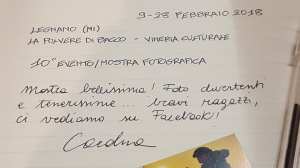 9-23 FEBBRAIO 2018
LEGNANO (MI)
LA POLVERE DI BACCO - VINERIA CULTURALE
10° EVENTO/MOSTRA FOTOGRAFICA
Mostra bellissima! Foto divertenti
e tenerissime... bravi ragazzi,
ci vediamo su Facebook!